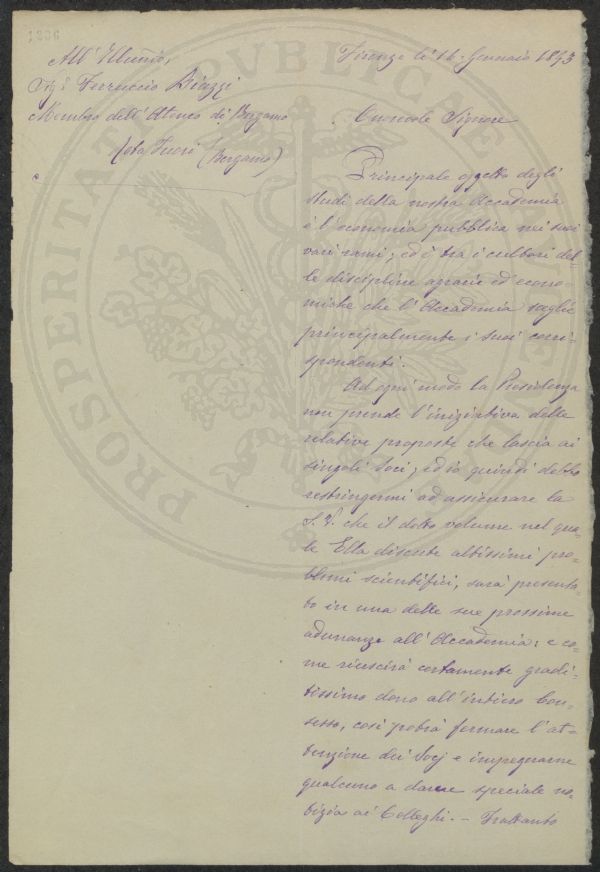 1886
All' Illmo,
Sig.r Ferruccio Biazzi
Membro dell'Ateneo di Bergamo
Cota Fuori (Bergamo)
Firenze li 16. Gennaio 1893
Onorevole Signore
Principale oggetto degli
studi della nostra Accademia
è l'economia pubblica nei suoi
varii rami; ed è tra i cultori del
le discipline agrarie ed econo-
miche che l'Accademia sceglie
principalmente i suoi corri-
spondenti.
Ad ogni modo la Presidenza
non prende l'iniziativa delle
relative proposte che lascia ai
singoli Soci; ed io quindi debbo
restringermi ad assicurare la
S. V. che il dotto volume nel qua-
le Ella discute altissimi pro-
blemi scientifici, sarà presenta-
to in una delle sue prossime
adunanze all'Accademia; e co-
me riescirà certamente gradi-
tissimo dono all'intiero Con-
sesso, così potrà fermare l'at-
tenzione dei Socj e impegnarne
qualcuno a darne speciale no-
tizia ai Colleghi. — Frattanto
PROSPERITATI PUBLICAE